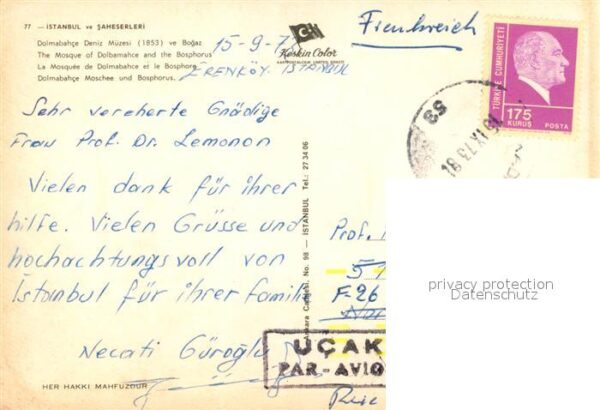 77 — İSTANBUL ve ŞAHESERLERİ
Dolmabahçe Deniz Müzesi (1853) ve Boğaz
The Mosque of Dolbamahce and the Bosphorus
La Mosquée de Dolmabahce et le Bosphore
Dolmabahçe Moschee und Bosphorus.
Keskin Color
15-9-7
ERENKÖY-İSTANBUL
Frenkreich
TÜRKİYE CUMHURİYETİ
175
KURUŞ POSTA
Sehr vereherte Gnädige
Frau Prof. Dr. Lemonon
Vielen dank für ihrer
hilfe. Vielen Grüsse und
hochachtungsvoll von
İstanbul für ihrer famili
Necati Güroğlu
Ankara Caddesi. No. 98 — İSTANBUL Tel.: 27 34 06
Prof.
F-26
UÇAK
PAR-AVIO
HER HAKKI MAHFUZDUR
privacy protection
Datenschutz